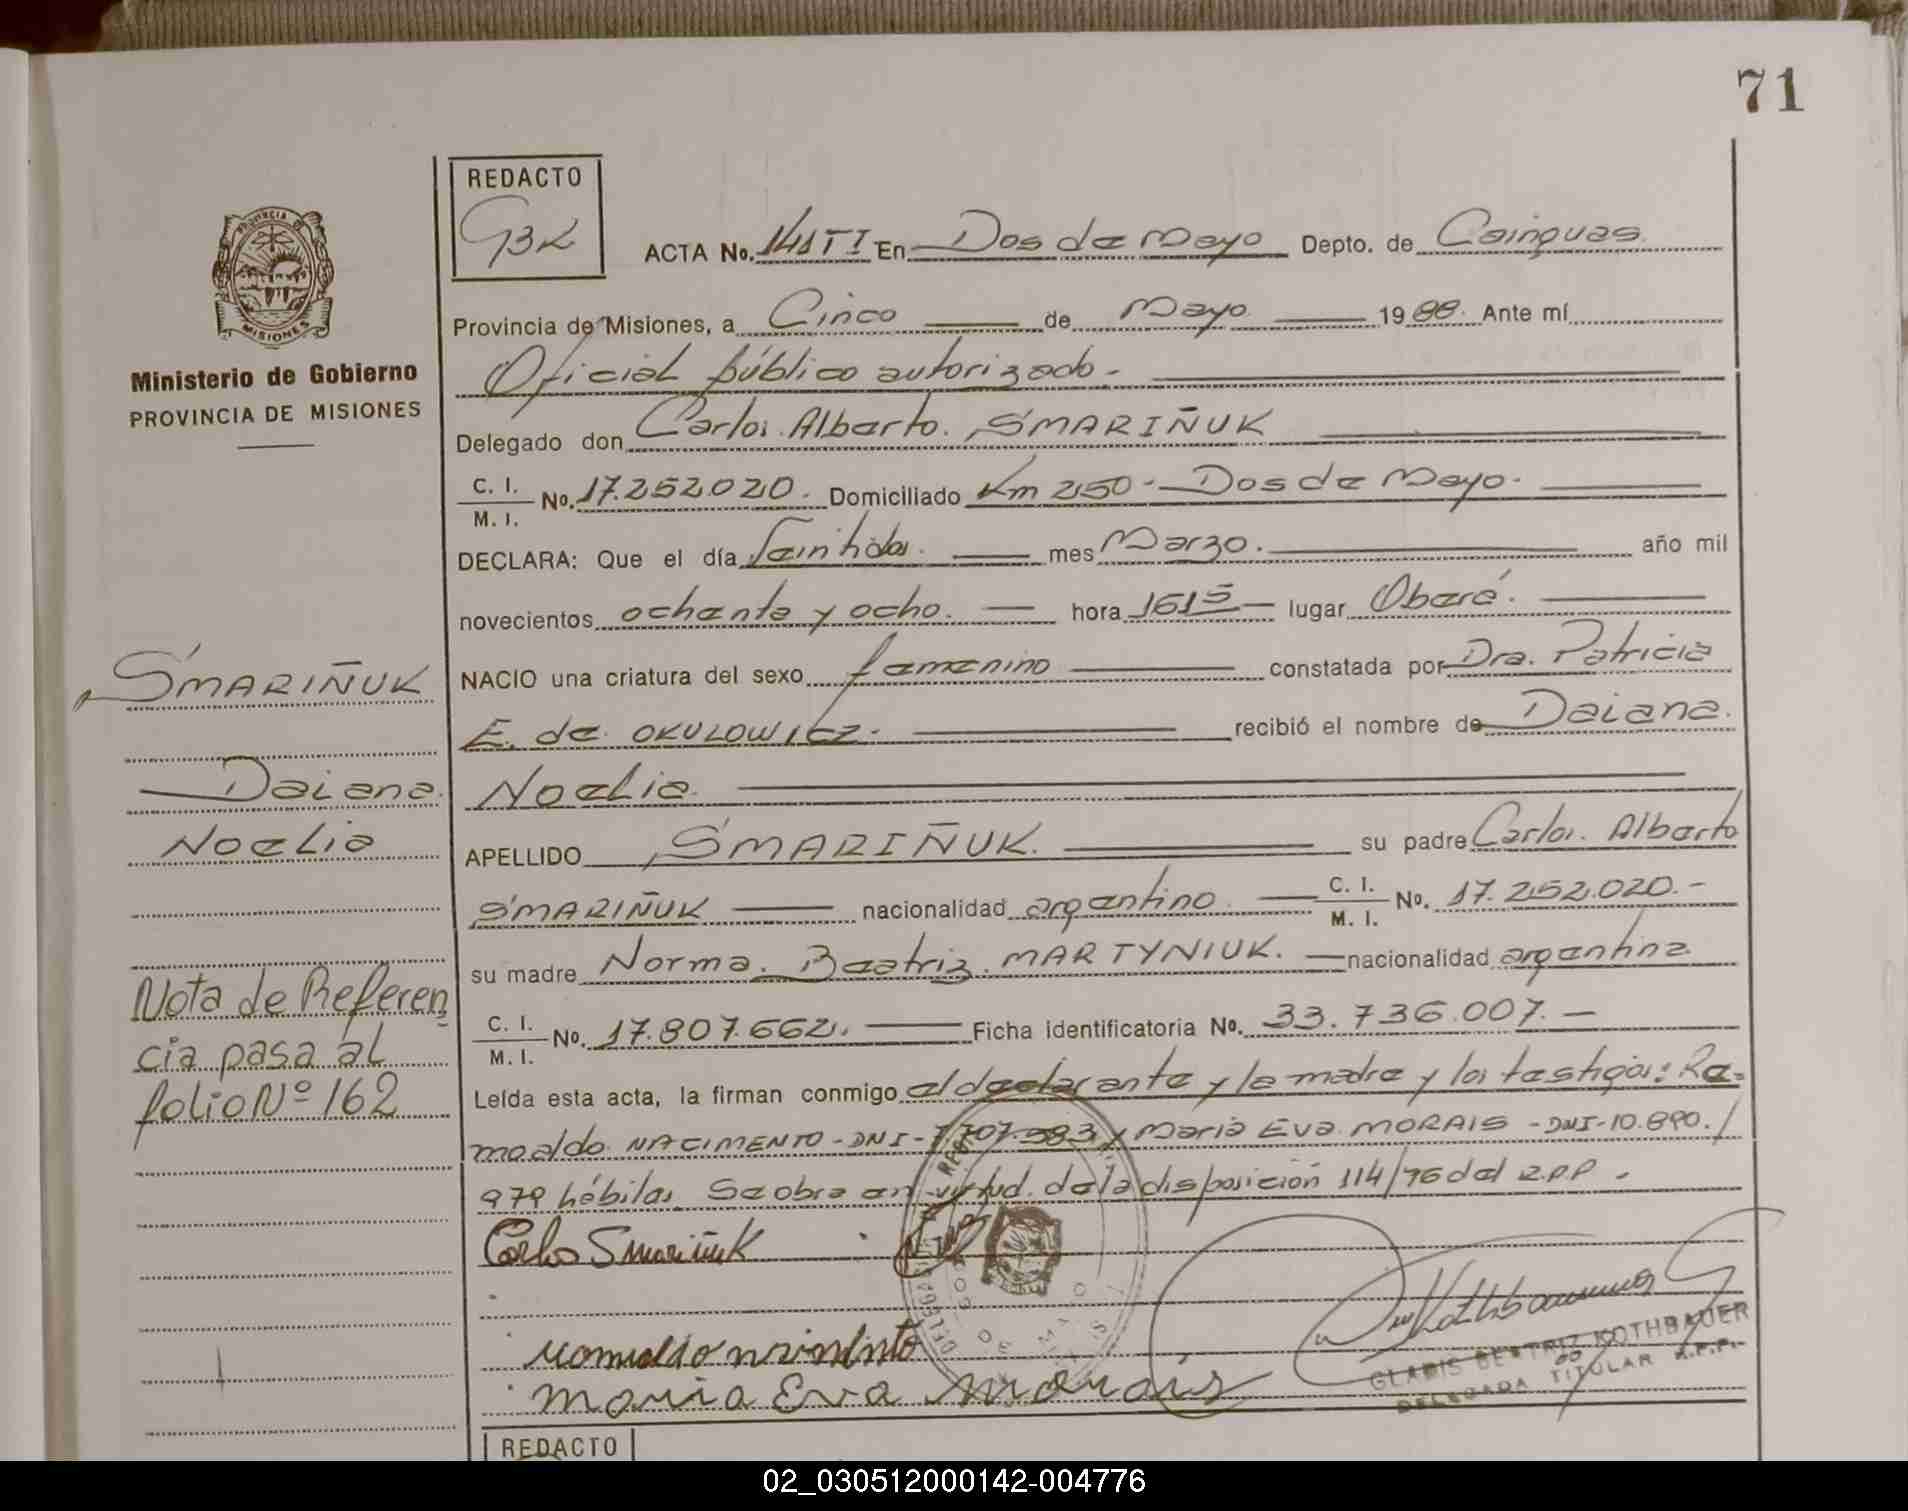 71
REDACTO
GBK
ACTA No. 141 TI En Dos de Mayo Depto. de Cainguas
Provincia de Misiones, a Cinco de Mayo 1988. Ante mí
Oficial público autorizado.-
Ministerio de Gobierno
PROVINCIA DE MISIONES
Delegado don Carlos Alberto SMARIÑUK
C. I. / M. I. No. 17.252.020. Domiciliado Km 250 - Dos de Mayo.
DECLARA: Que el día mes Marzo. año mil
novecientos ochenta y ocho. hora 1615 lugar Oberá.
SMARIÑUK
NACIO una criatura del sexo femenino constatada por Dra. Patricia
E. de OKULOWICZ. recibió el nombre de Daiana
Daiana
Noelia
Noelia
APELLIDO SMARIÑUK. su padre Carlos Alberto
SMARIÑUK nacionalidad argentino C. I. / M. I. No. 17.252.020.-
su madre Norma Beatriz MARTYNIUK. nacionalidad argentina
Nota de Referen
cia pasa al
folio Nº 162
C. I. / M. I. No. 17.807.662. Ficha identificatoria No. 33.736.007.-
Leída esta acta, la firman conmigo el declarante y la madre y los testigos: Ro-
maldo NACIMENTO - DNI - 7.707.983 y Maria Eva MORAIS - DNI - 10.890./
979 hábiles. Se obra en virtud de la disposición 114/76 del R.P.P.
Carlos Smariñuk
Maria Eva Morais
GLADIS BEATRIZ KOTHBAUER
DELEGADA TITULAR R.P.P.
REDACTO
02_030512000142-004776